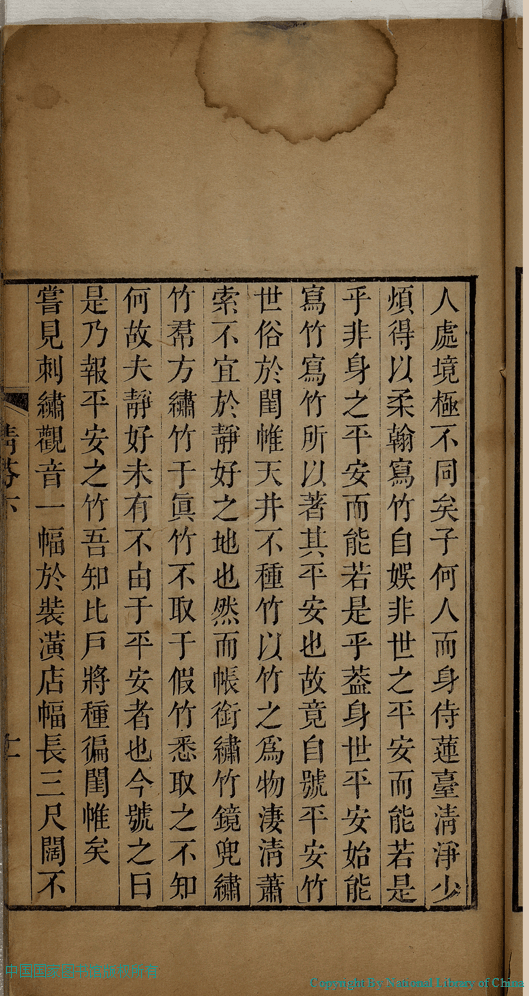 人處境極不同矣子何人而身侍蓮臺清淨少
煩得以柔翰寫竹自娛非世之平安而能若是
乎非身之平安而能若是乎葢身世平安始能
寫竹寫竹所以著其平安也故竟自號平安竹
世俗於閨帷天井不種竹以竹之爲物淒清蕭
索不宜於靜好之地也然而帳銜繡竹鏡兜繡
竹帬方繡竹于眞竹不取于假竹悉取之不知
何故夫靜好未有不由于平安者也今號之曰
是乃報平安之竹吾知比戶將種徧閨帷矣
嘗見刺繡觀音一幅於裝潢店幅長三尺闊不
下
十一
Copyright By National Library of China